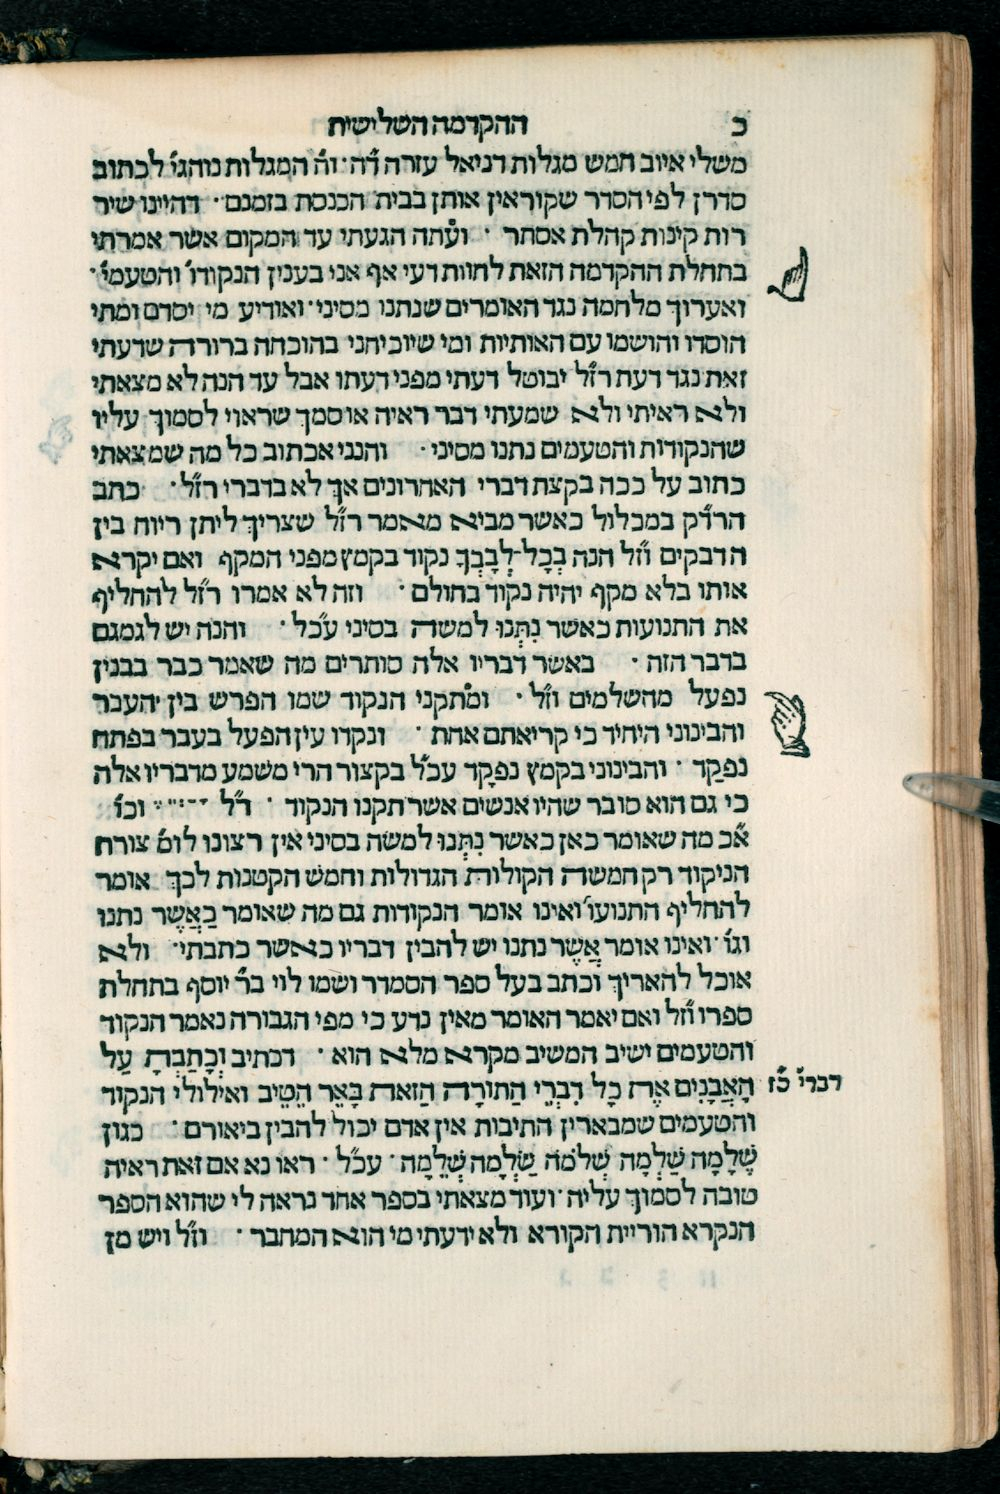 כ ההקדמה השלישית
משלי איוב חמש מגלות דניאל עזרה ד״ה · וה׳ המגלות נוהגי׳ לכתוב
סדרן לפי הסדר שקוראין אותן בבית הכנסת בזמנם · דהיינו שיר
רות קינות קהלת אסתר · ועתה הגעתי עד המקום אשר אמרתי
בתחלת ההקדמה הזאת לחוות דעי אף אני בענין הנקודו׳ והטעמי׳ ·
ואערוך מלחמה נגד האומרים שנתנו מסיני · ואודיע מי יסדם ומתי
הוסדו והושמו עם האותיות ומי שיוכיחני בהוכחה ברורה שדעתי
זאת נגד דעת רז״ל יבוטל דעתי מפני דעתו אבל עד הנה לא מצאתי
ולא ראיתי ולא שמעתי דבר ראיה או סמך שראוי לסמוך עליו
שהנקודות והטעמים נתנו מסיני · והנני אכתוב כל מה שמצאתי
כתוב על ככה בקצת דברי האחרונים אך לא בדברי רז״ל · כתב
הרד״ק במכלול כאשר מביא מאמר רז״ל שצריך ליתן ריוח בין
הדבקים וז״ל הנה בְכָל־לְבָבְךָ נקוד בקמץ מפני המקף ואם יקרא
אותו בלא מקף יהיה נקוד בחולם · וזה לא אמרו רז״ל להחליף
את התנועות כאשר נִתְּנוּ למשה בסיני עכ״ל · והנה יש לגמגם
בדבר הזה · באשר דבריו אלה סותרים מה שאמר כבר בבנין
נפעל מהשלמים וז״ל · ומתקני הנקוד שמו הפרש בין העבר
והבינוני היחיד כי קריאתם אחת · ונקדו עין הפעל בעבר בפתח
נפקַד · והבינוני בקמץ נפקָד עכ״ל בקצור הרי משמע מדבריו אלה
כי גם הוא סובר שהיו אנשים אשר תקנו הנקוד · ר״ל וכו׳
א״כ מה שאומר כאן כאשר נִתְּנוּ למשה בסיני אין רצונו לומ׳ צורת
הניקוד רק חמשה הקולות הגדולות וחמש הקטנות לכך אומר
להחליף התנועו׳ ואינו אומר הנקודות גם מה שאומר כַאֲשֶר נתנו
וגו׳ · ואינו אומר אֲשֶר נתנו יש להבין דבריו כאשר כתבתי · ולא
אוכל להאריך וכתב בעל ספר הסמדר ושמו לוי בר׳ יוסף בתחלת
ספרו וז״ל ואם יאמר האומר מאין נדע כי מפי הגבורה נאמר הנקוד
והטעמים ישיב המשיב מקרא מלא הוא · דכתיב וְכָתַבְתָ עַל
הָאֲבָנִים אֶת כָל דִבְרֵי הַתוֹרָה הַזאת בַּאֵר הֵטֵיב ואילולי הנקוד
דברי׳ כ״ז
והטעמים שמבארין התיבות אין אדם יכול להבין ביאורם · כגון
שֶׁלָמָה שַׁלְמָה שְׁלֹמֹה שַׂלְמָה שְׁלֵמָה · עכ״ל · ראו נא אם זאת ראיה
טובה לסמוך עליה · ועוד מצאתי בספר אחד נראה לי שהוא הספר
הנקרא הוריית הקורא ולא ידעתי מי הוא המחבר · וז״ל ויש מן